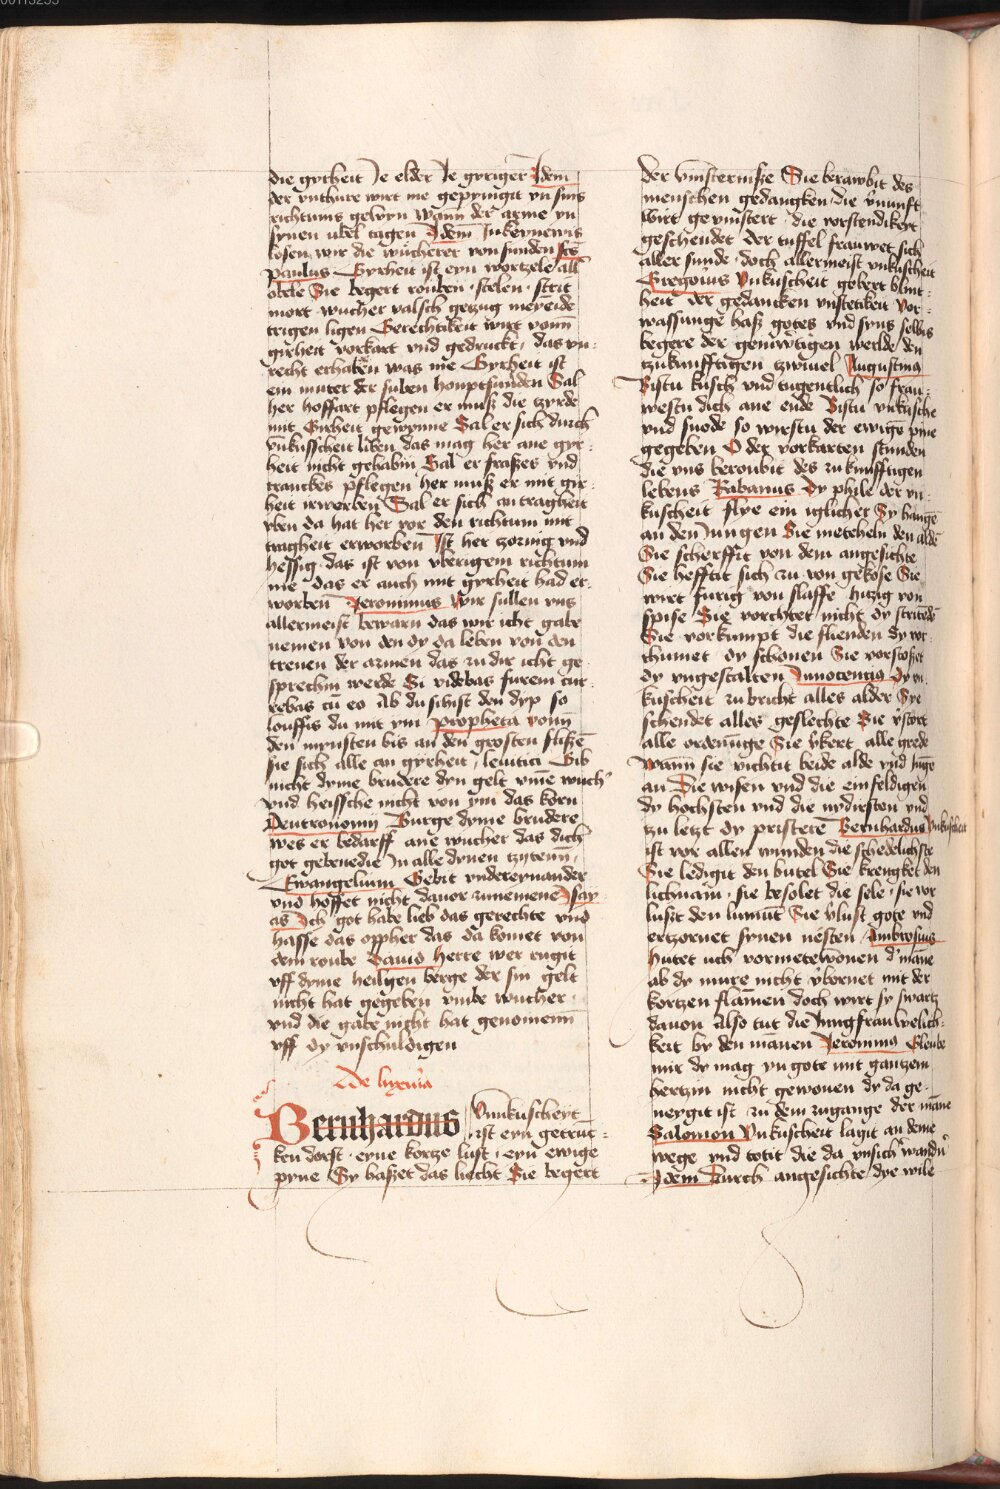 die gyrheit Je elder Je gyriger Jdem
der vnthure wirt me gepyngit vn̄ syns
richtums gelvyn wann der arme vn̄
synen ubel tagen Jdem̄ Jn keynewis
losen wir die wucherer von sunden Scūs
paulus Gyrheit ist eyn wortzele all
obele Sie begert rouben · stelen · strit
mort wucher valsch gezug meyneide
trigen ligen Gerechtikeit wirt vonn
girheit vorkart vnd gedruckt / das vn=
recht erhaben was me Gyrheit ist
ein muter der suben houptsunden Sal
her hoffart pflegen er muß die zyrde
mit Girheit gewynne Sal er sich durch
vnkusscheit liben das mag her ane gyr=
heit nicht gehabin Sal er fraßes vnd
tranckes pflegen her muß er mit gir=
heit irwerben Sal er sich an tragheit
vben da hat her vor den richtum mit
tragheit erworben Jst her zornig vnd
hessig · das ist von vberigem richtum
me das er auch mit gyrheit had er=
worben Jeronimus Wir sullen vns
allermeist bewarn das wir icht gabe
nemen von den dy da leben von den
trenen der armen das zu dir icht ge=
sprechin werde Si videbas furem cur=
rebas cū eo Ab du sihist den dyp so
louffis du mit ym propheta vonn
den mynsten bis an den grosten flißē
sie sich alle an gyrheit / leuitici Gib
nicht dyme brudere dyn gelt vm̄e wuch'
vnd heissche nicht von ym das korn
Deutronomy Burge dyme brudere
wes er bedarff ane wucher das dich
got gebenedie Jn alle dynen zytenn /
Ewangelium Gebit vndereynander
vnd hoffet nicht dauon zunemene Jsay=
as Jch got habe lieb das gerechte vnd
hasse das oppher das da komet von
dem roube Dauid Herre wer rugit
vff dyme heiligen berge der sin gelt
nicht hat gegeben vmbe wucher ·
vnd die gabe nicht hat genomenn
vff dy vnschuldigen
De luxuria
Bernhardus Vnnkuscheyt
ist eyn getrūc=
ken dorst · eyne kortze lust / eyn ewige
pyne Sy haßet das liecht Sie begert
der vinsterniße Sie berawbit des
menschen gedangken / die v̄nunfft
wirt gevinstert · die vorstendikeit
geschendet der tuffel frauwet sich
aller sunde · doch allermeist vnkuscheit
Gregoius Vnkuscheit gebert blint=
heit der gedancken vnstetikeit Vor=
wassunge haß gotes vnd syns selbis
begere der genwtigen werlde den
zukunfftigen zwiuel Augustinus
Bistu kusch vnd tugentlich so frau=
westu dich ane ende Bistu vnkusche
vnd snode so wirstu der ewigē pine
gegeben O der vorkarten stunden
die vns beroubit des zukunfftigen
lebens Rabanus Dy phile der vn=
kuscheit flye ein iglicher Sy hangē
an den Jungen Sie meteheln den aldē
Sie scherffit von dem angesichte
Sie hefftit sich zu von gekose Sie
wirt furig von slaffe hizig von
spise Sie vorchtet nicht dy stritedē
Sie vorkumpt die flienden dy vor=
thumet dy schonen Sie vorstoßet
dy vngestalten Jnnocencius Dy vn=
kuscheit zubricht alles alder Sye
schendet alles geslechte Sie v̄stort
alle ordenūge Sie v̄kert alle grede
Wann sie vichtit beide alde vnd jūge
an Die wisen vnd die einfeldigen
dy hochsten vnd die nydirsten vnd
zu letzt dy pristere Bernhardus Vnkuscheit
ist vor allen wunden die schedelichste
Sie ledigit den butel Sie krengket den
lichnam · sie besolet die sele · sie vor=
lusit den lumūt Sie v̄lust gote vnd
erzornet synen nesten Ambrosius
Hutet uch vormetewonen d' mane
ab dy mure nicht v̄bornet mit der
kortzen flamen doch wirt sy swartz
dauon Also tut die Jungfrauwelich=
keit by den manen Jeronimus Gleube
mir dy mag yn gote mit gantzem
hertzin nicht gewonen dy da ge=
neygit ist zu dem zugange der mane
Salomon Vnkuscheit lagit an deme
wege vnd totit die da vnsich' wandn̄
Jdem Durch angesichte / dye wile